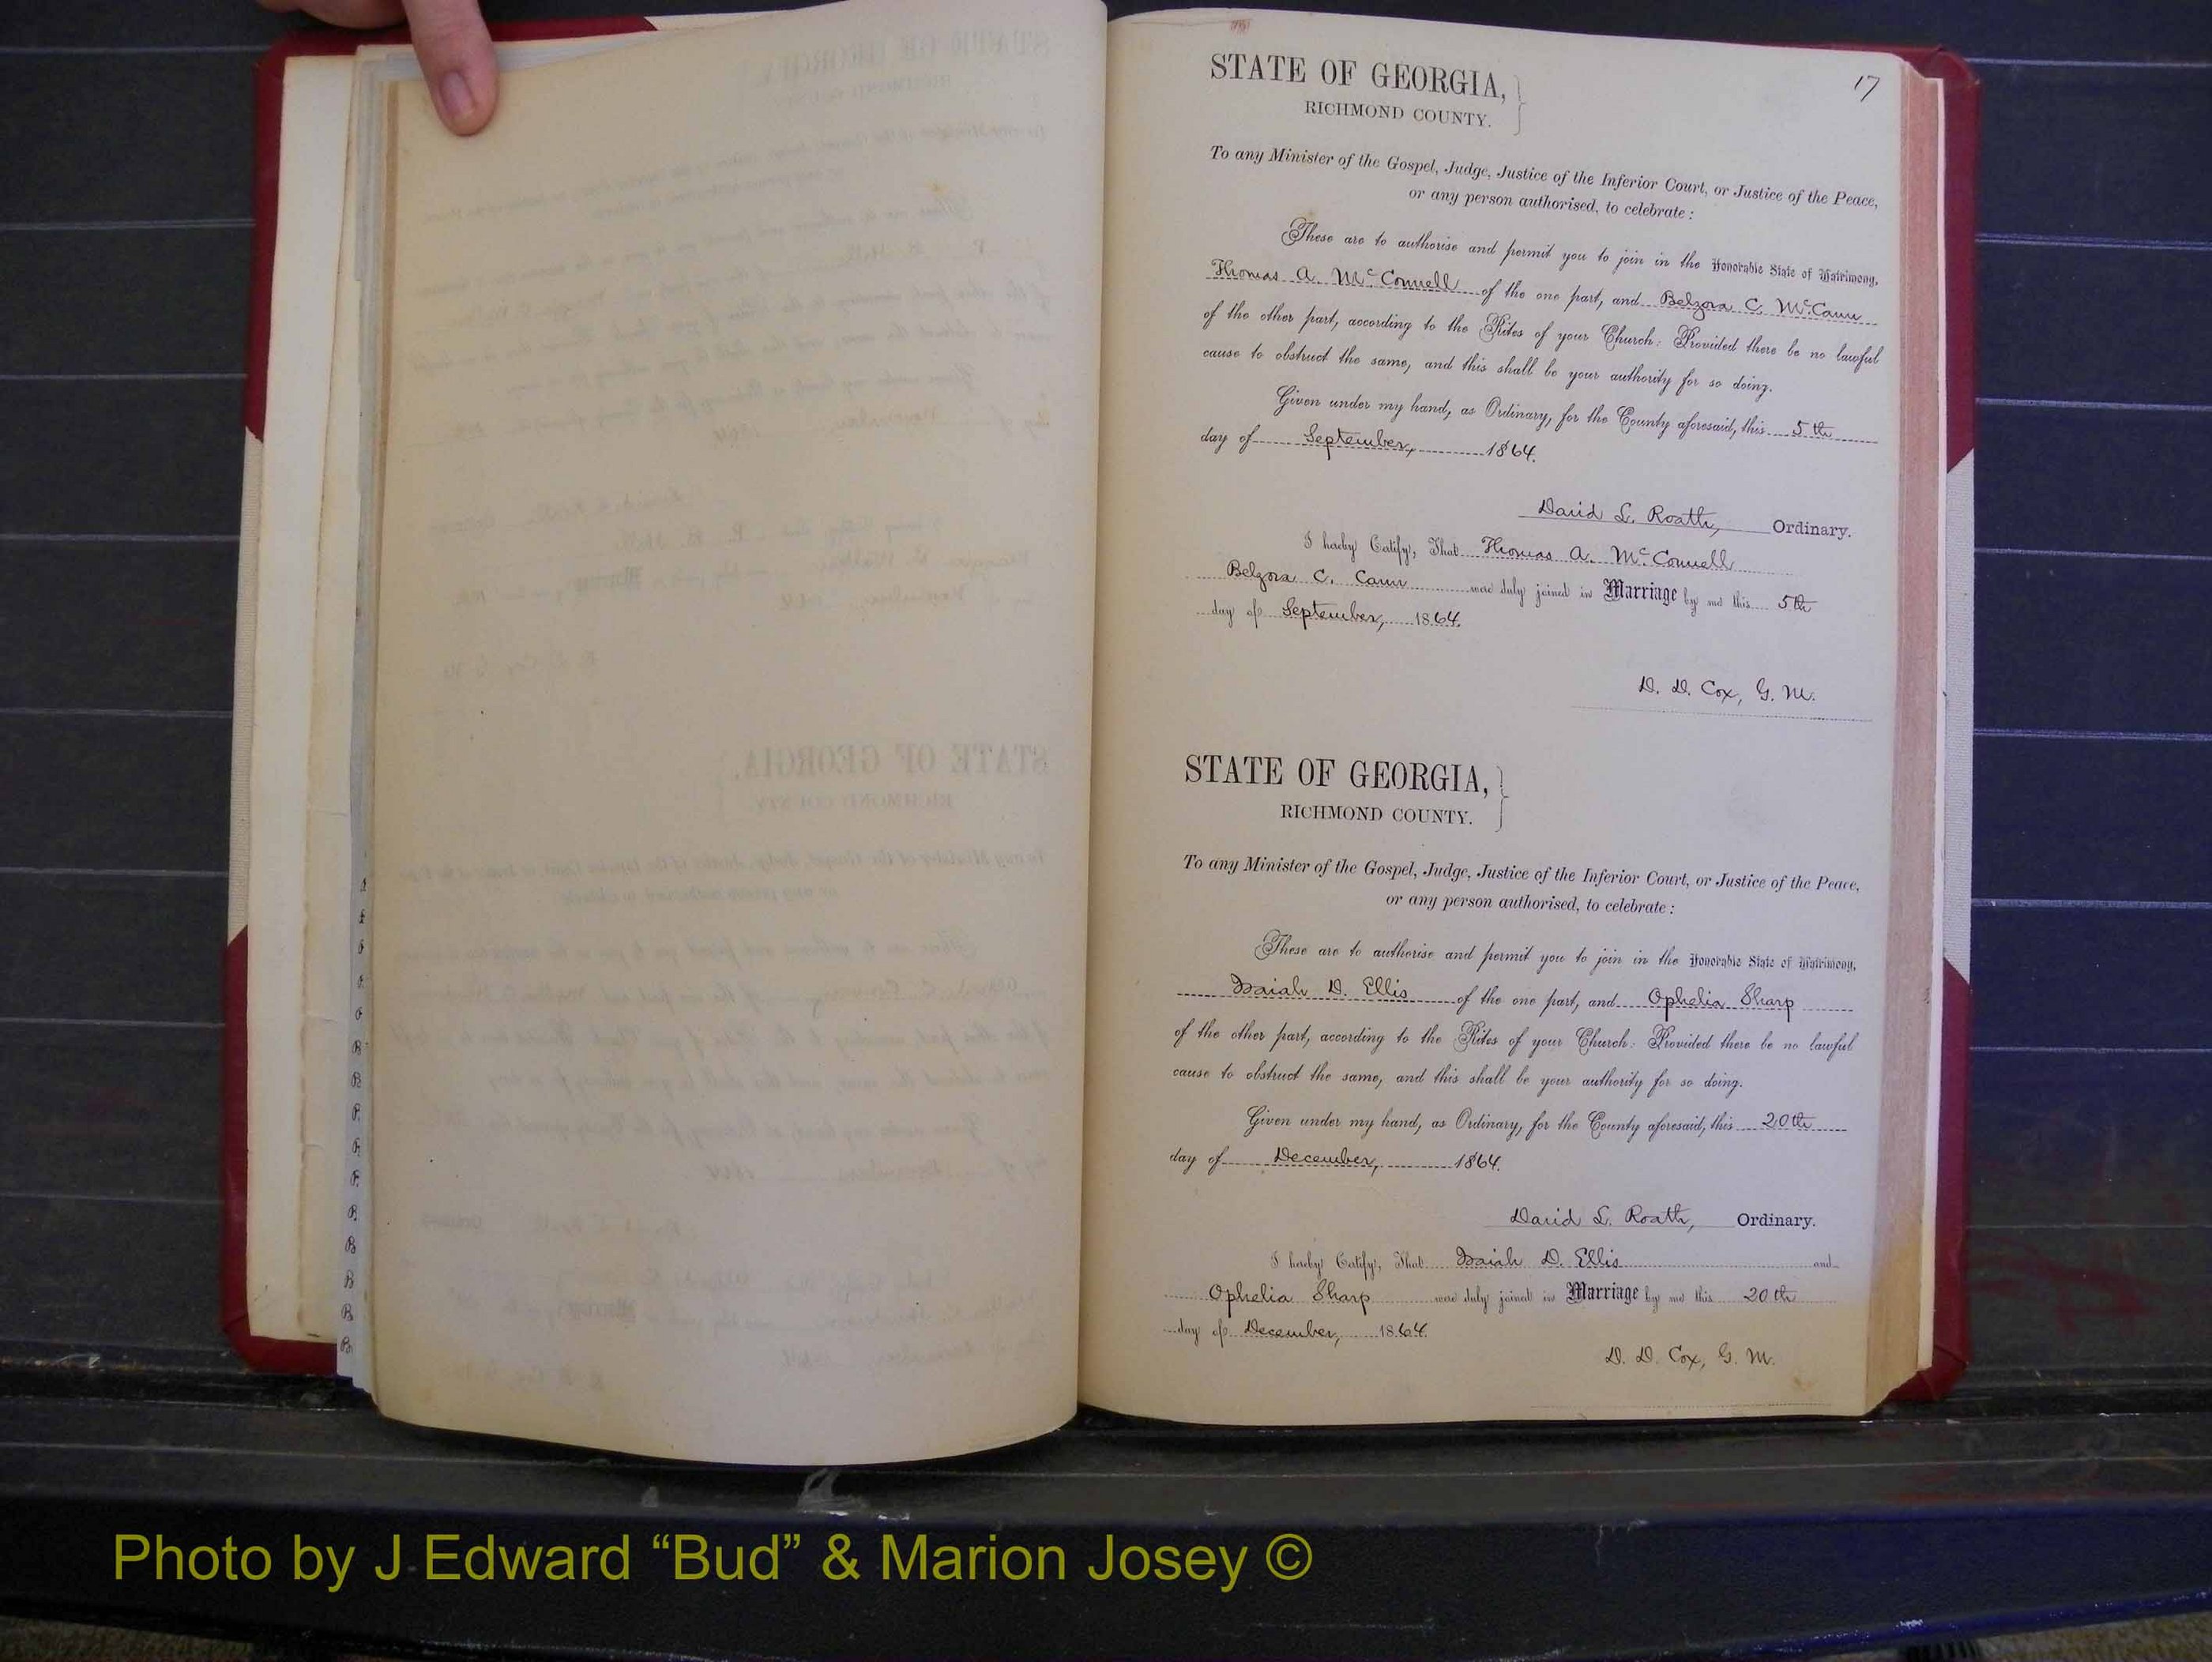 17
STATE OF GEORGIA,
RICHMOND COUNTY.
To any Minister of the Gospel, Judge, Justice of the Inferior Court, or Justice of the Peace,
or any person authorised, to celebrate :
These are to authorise and permit you to join in the Honorable State of Matrimony,
Thomas A. McConnell of the one part, and Belzora C. McCann
of the other part, according to the Rites of your Church: Provided there be no lawful
cause to obstruct the same, and this shall be your authority for so doing.
Given under my hand, as Ordinary, for the County aforesaid, this 5th
day of September, 1864.
David L. Roath, Ordinary.
I hereby Certify, That Thomas A. McConnell
Belzora C. Cann were duly joined in Marriage by me this 5th
day of September, 1864.
D. D. Cox, G. M.
STATE OF GEORGIA,
RICHMOND COUNTY.
To any Minister of the Gospel, Judge, Justice of the Inferior Court, or Justice of the Peace,
or any person authorised, to celebrate :
These are to authorise and permit you to join in the Honorable State of Matrimony,
Isaiah D. Ellis of the one part, and Ophelia Sharp
of the other part, according to the Rites of your Church: Provided there be no lawful
cause to obstruct the same, and this shall be your authority for so doing.
Given under my hand, as Ordinary, for the County aforesaid, this 20th
day of December, 1864.
David L. Roath, Ordinary.
I hereby Certify, That Isaiah D. Ellis and
Ophelia Sharp were duly joined in Marriage by me this 20th
day of December, 1864.
D. D. Cox, G. M.
Photo by J Edward “Bud” & Marion Josey ©